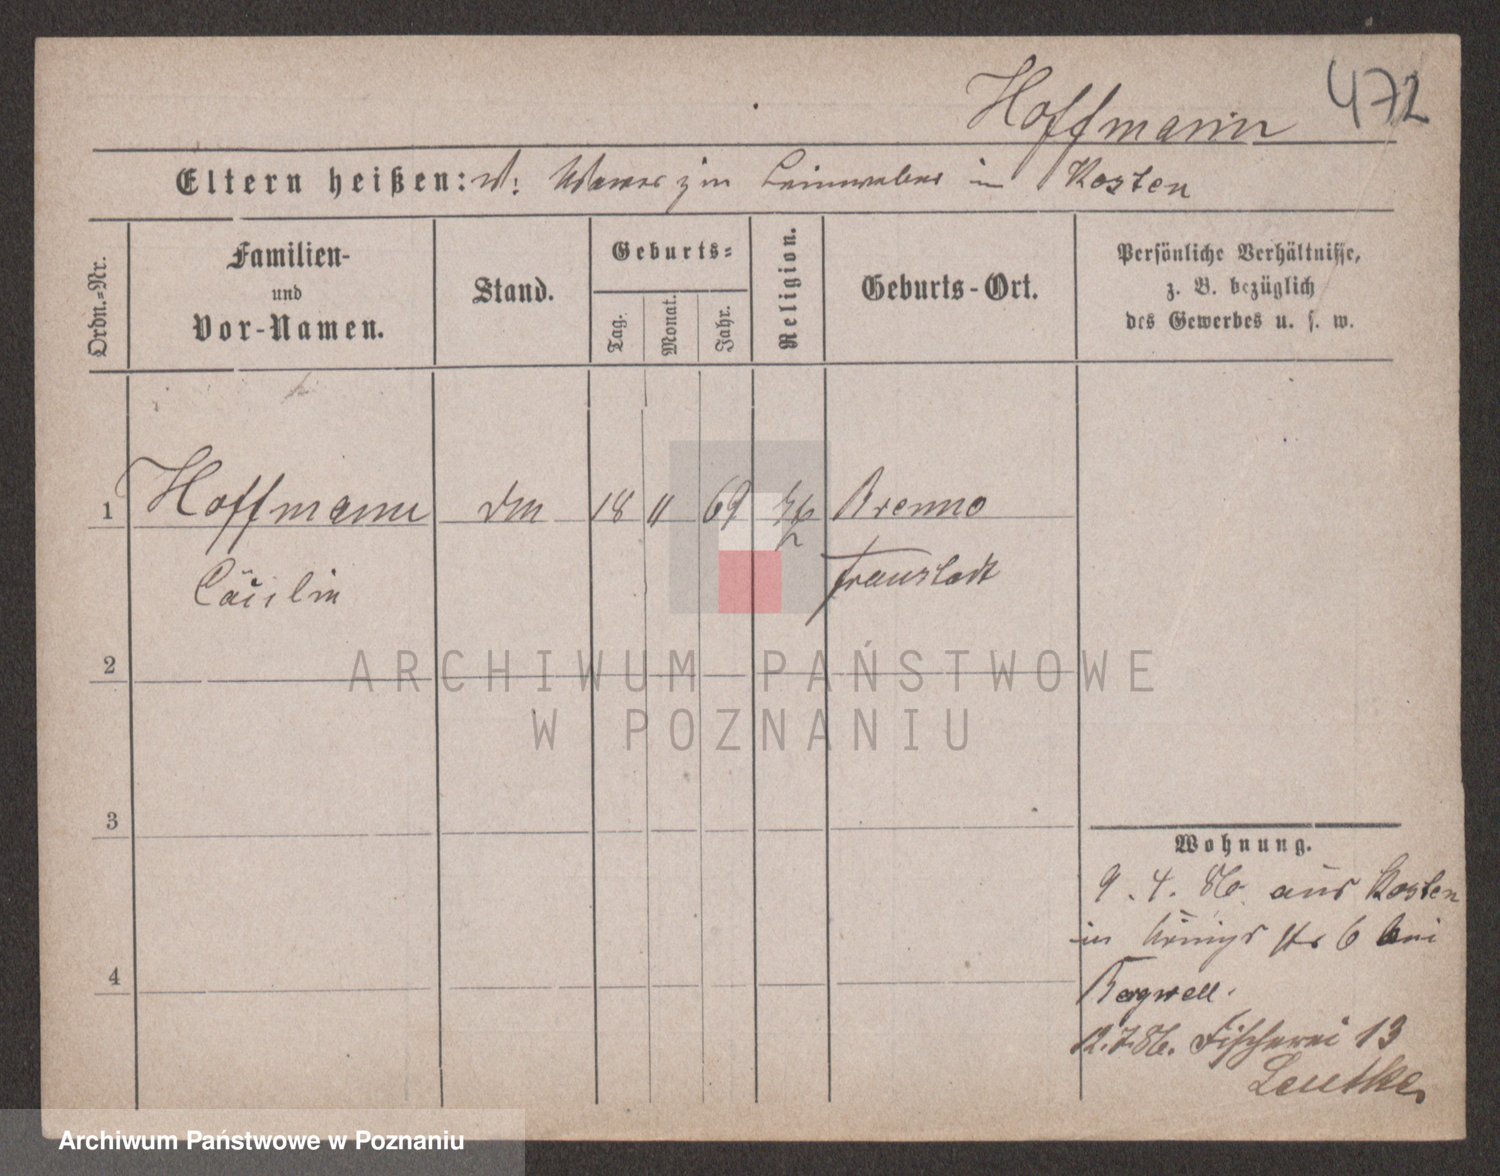 Hoffmann 472
Eltern heißen: in Kosten
Ordn.-Nr.
Familien-
und
Vor-Namen.
Stand.
Geburts-
Tag.
Monat.
Jahr.
Religion.
Geburts-Ort.
Persönliche Verhältnisse,
z. B. bezüglich
des Gewerbes u. s. w.
1 Hoffmann 18 11 69 Brenno
Cäcilie Fraustadt
2
3
4
Wohnung.
9. 4. 86. aus Kosten
in Königs str 6 bei
12.7.86. Fischerei 13
ARCHIWUM PAŃSTWOWE
W POZNANIU
Archiwum Państwowe w Poznaniu